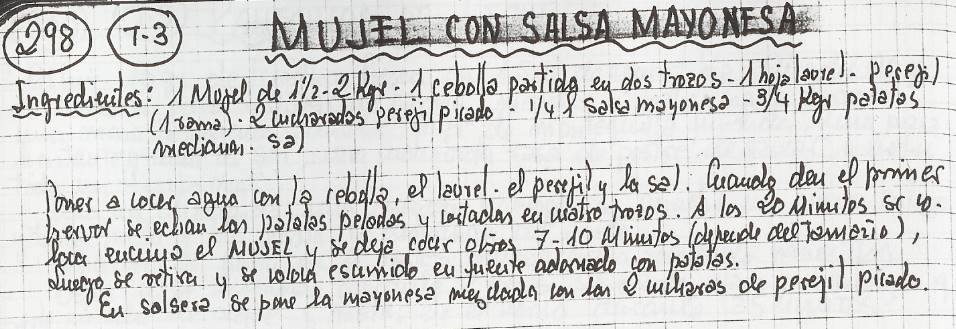 298 T-3 MUJEL CON SALSA MAYONESA
Ingredientes: 1 Mujel de 1½-2 Kgr - 1 cebolla partida en dos trozos - 1 hoja laurel - Perejil
(1 rama) - 2 cucharadas perejil picado - 1/4 l salsa mayonesa - 3/4 Kgr patatas
medianas. sal
Poner a cocer agua con la cebolla, el laurel - el perejil y la sal. Cuando den el primer
hervor se echan las patatas peladas y cortadas en cuatro trozos. A los 20 Minutos se co-
loca encima el MUJEL y se deja cocer otros 7-10 Minutos (depende del tamaño),
Luego se retira y se coloca escurrido en fuente adornado con patatas.
En salsera se pone la mayonesa mezclada con las 2 cucharas de perejil picado.